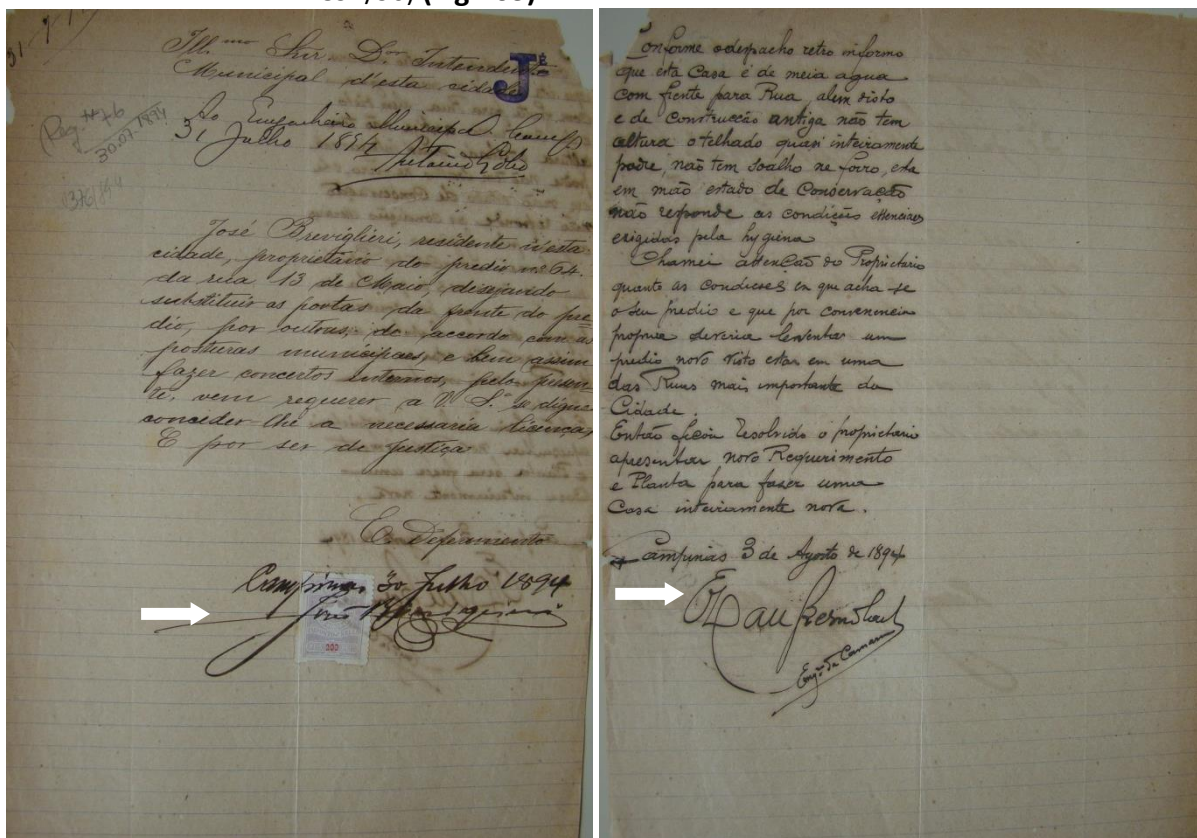 Ill.mo Snr. Dor. Intendente
Municipal d'esta cidade
JÉ
Ao Engenheiro Municipal.
31 Julho 1894
Antonio Lobo
30.07.1894
José Breviglieri, residente n'esta
cidade, proprietario do predio nº 64.
da rua 13 de Maio, desejando
substituir as portas da frente do pre
dio, por outras, de accordo com as
posturas municipaes, e bem assim
fazer concertos internos, pelo presen
te, vem requerer a V. S.ª se digne
conceder-lhe a necessaria licença,
E por ser de justiça
E. Deferimento
Campinas 30 Julho 1894
José
200
Conforme o despacho retro informo
que esta Casa é de meia agua
com frente para Rua, alem disto
e de Construcção antiga não tem
altura o telhado quasi inteiramente
podre, não tem soalho ne forro, esta
em máo estado de Conservação
não responde as condições essenciaes
exigidas pela hygiena
Chamei attenção do Proprietario
quanto as condicões en que acha-se
o seu predio e que por convenencia
propria deveria levantar um
predio novo visto estar en uma
das Ruas mais importante da
Cidade.
Então ficou resolvido o proprietario
apresentar novo Requerimento
e Planta para faser uma
Casa inteiramente nova.
Campinas 3 de Agosto de 1894
Engº da Camara